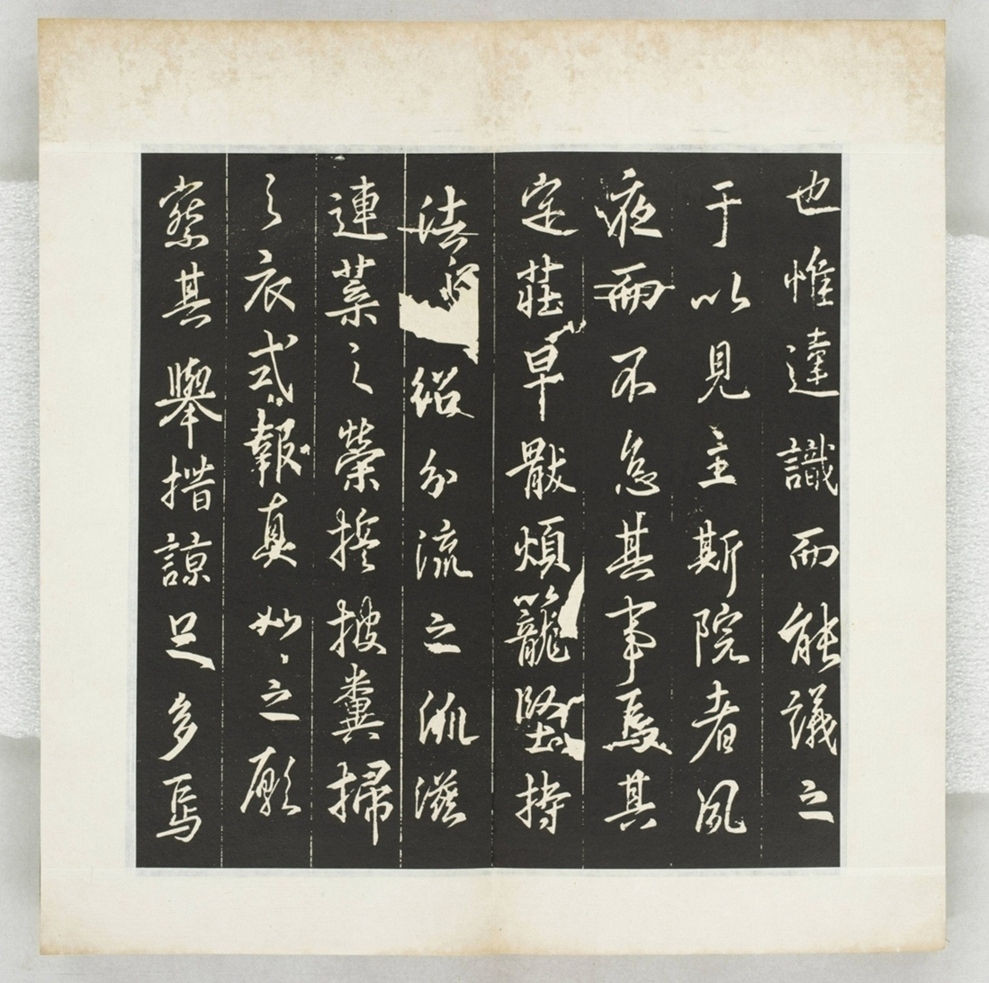 也惟達識而能議之
于以見主斯院者夙
夜而不怠其事焉其
定莊早猒煩籠堅持
法印紹分流之派滋
連葉之榮搜糞掃
之衣式報真如〻之願
察其舉措諒足多焉